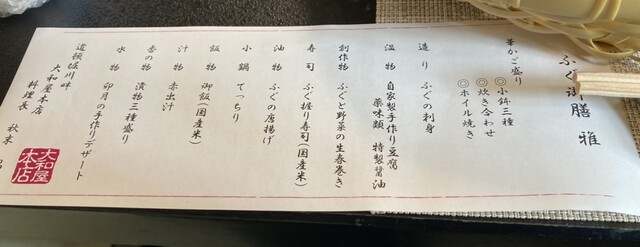 ふぐ御膳 雅
華かご盛り
◎小鉢三種
◎炊き合わせ
◎ホイル焼き
造り ふぐの刺身
温物 自家製手作り豆腐
薬味類 特製醤油
創作物 ふぐと野菜の生春巻き
寿司 ふぐ握り寿司(国産米)
油物 ふぐの唐揚げ
小鍋 てっちり
飯物 御飯(国産米)
汁物 赤出汁
香の物 漬物三種盛り
水物 卯月の手作りデザート
道頓堀川畔
大和屋本店
料理長 秋末
大和屋
本店